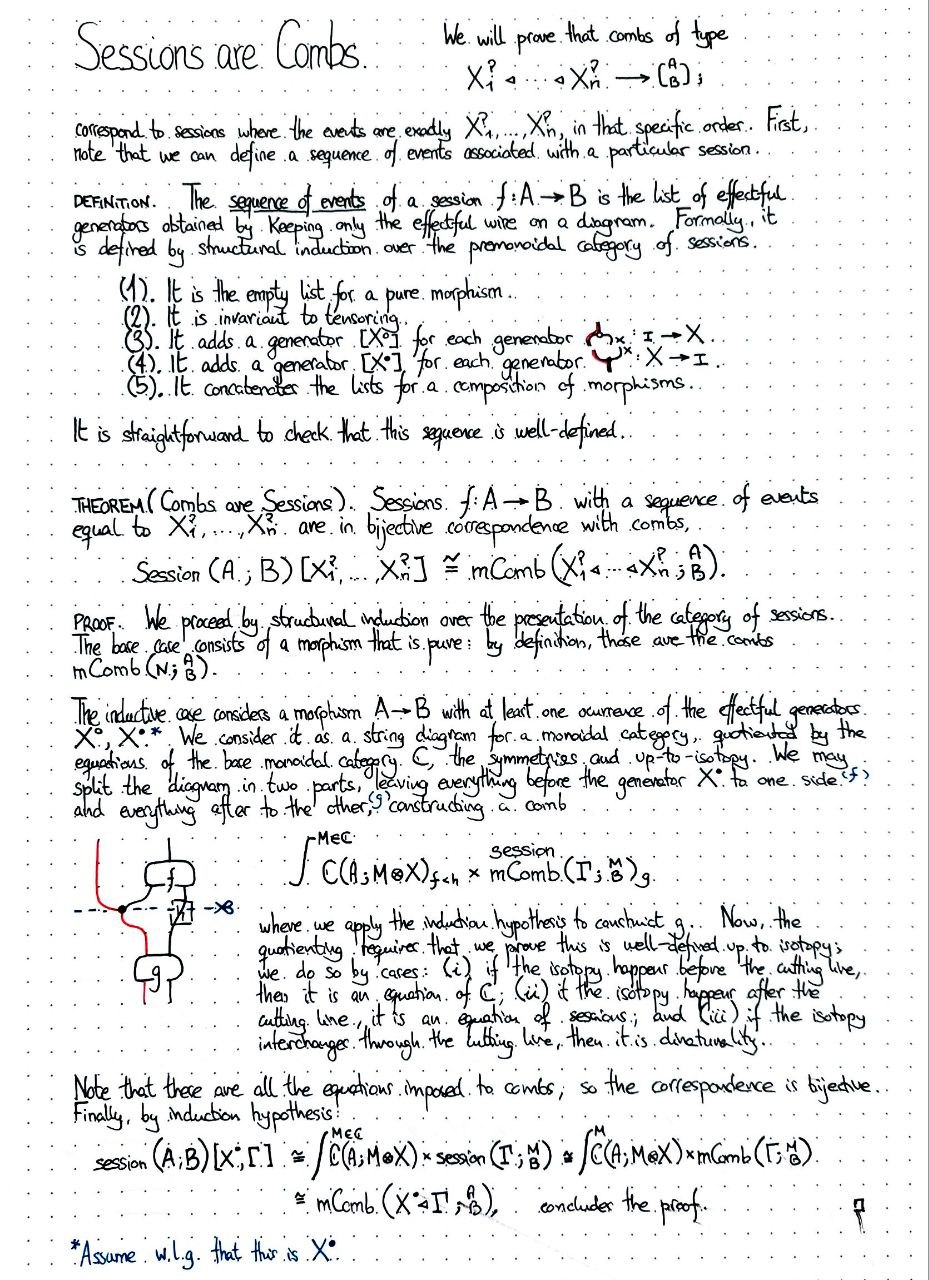 Sessions are Combs.
We will prove that combs of type
X₁? ◃ ⋯ ◃ Xₙ? → (A B);
correspond to sessions where the events are exactly X₁?, ..., Xₙ?, in that specific order. First,
note that we can define a sequence of events associated with a particular session.
DEFINITION. The sequence of events of a session f: A → B is the list of effectful
generators obtained by keeping only the effectful wire on a diagram. Formally, it
is defined by structural induction over the premonoidal category of sessions.
(1). It is the empty list for a pure morphism.
(2). It is invariant to tensoring.
(3). It adds a generator [X°] for each generator x: I → X.
(4). It adds a generator [X•] for each generator x: X → I.
(5). It concatenates the lists for a composition of morphisms.
It is straightforward to check that this sequence is well-defined.
THEOREM (Combs are Sessions). Sessions f: A → B with a sequence of events
equal to X₁?, ..., Xₙ? are in bijective correspondence with combs,
Session (A; B) [X₁?, ..., Xₙ?] ≅ mComb (X₁? ◃ ⋯ ◃ Xₙ? ; A B).
PROOF. We proceed by structural induction over the presentation of the category of sessions.
The base case consists of a morphism that is pure: by definition, those are the combs
mComb (N; A B).
The inductive case considers a morphism A → B with at least one ocurrence of the effectful generators
X°, X•.* We consider it as a string diagram for a monoidal category, quotiented by the
equations of the base monoidal category C, the symmetries and up-to-isotopy. We may
split the diagram in two parts, leaving everything before the generator X• to one side (f)
and everything after to the other, (g) constructing a comb
∫^{M∈C} C(A; M⊗X)_{f◃h} × mComb (Γ; M B)_g.
session
f
h
g
where we apply the induction hypothesis to construct g. Now, the
quotienting requires that we prove this is well-defined up to isotopy;
we do so by cases: (i) if the isotopy happens before the cutting line,
then it is an equation of C; (ii) if the isotopy happens after the
cutting line, it is an equation of sessions; and (iii) if the isotopy
interchanges through the cutting line, then it is dinaturality.
Note that these are all the equations imposed to combs; so the correspondence is bijective.
Finally, by induction hypothesis:
session (A; B) [X•, Γ] ≅ ∫^{M∈C} C(A; M⊗X) × session (Γ; M B) ≅ ∫^M C(A; M⊗X) × mComb (Γ; M B)
≅ mComb (X• ◃ Γ ; A B), concludes the proof.
*Assume w.l.g. that this is X•